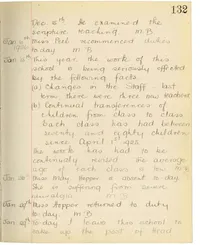 132
Dec 15th He examined the
scripture teaching M.B
Jan 11th Miss Peel recommenced duties
today M.B
Jan 15th This year the work of this
school is being seriously affected
by the following facts
(a) Changes in the Staff - last
term there were three new teachers
(b) Continual transferences of
children from class to class
Each class has had between
seventy and eighty children
since April 1st 1923
The work has had to be
continually revised The average
age of each class is low M.B
Jan Miss Hopper is absent to-day
She is suffering from severe
neuralgia M.B
Jan Miss Hopper returned to duty
to-day M.B
Jan To-day I leave this school to
take up the post of Head